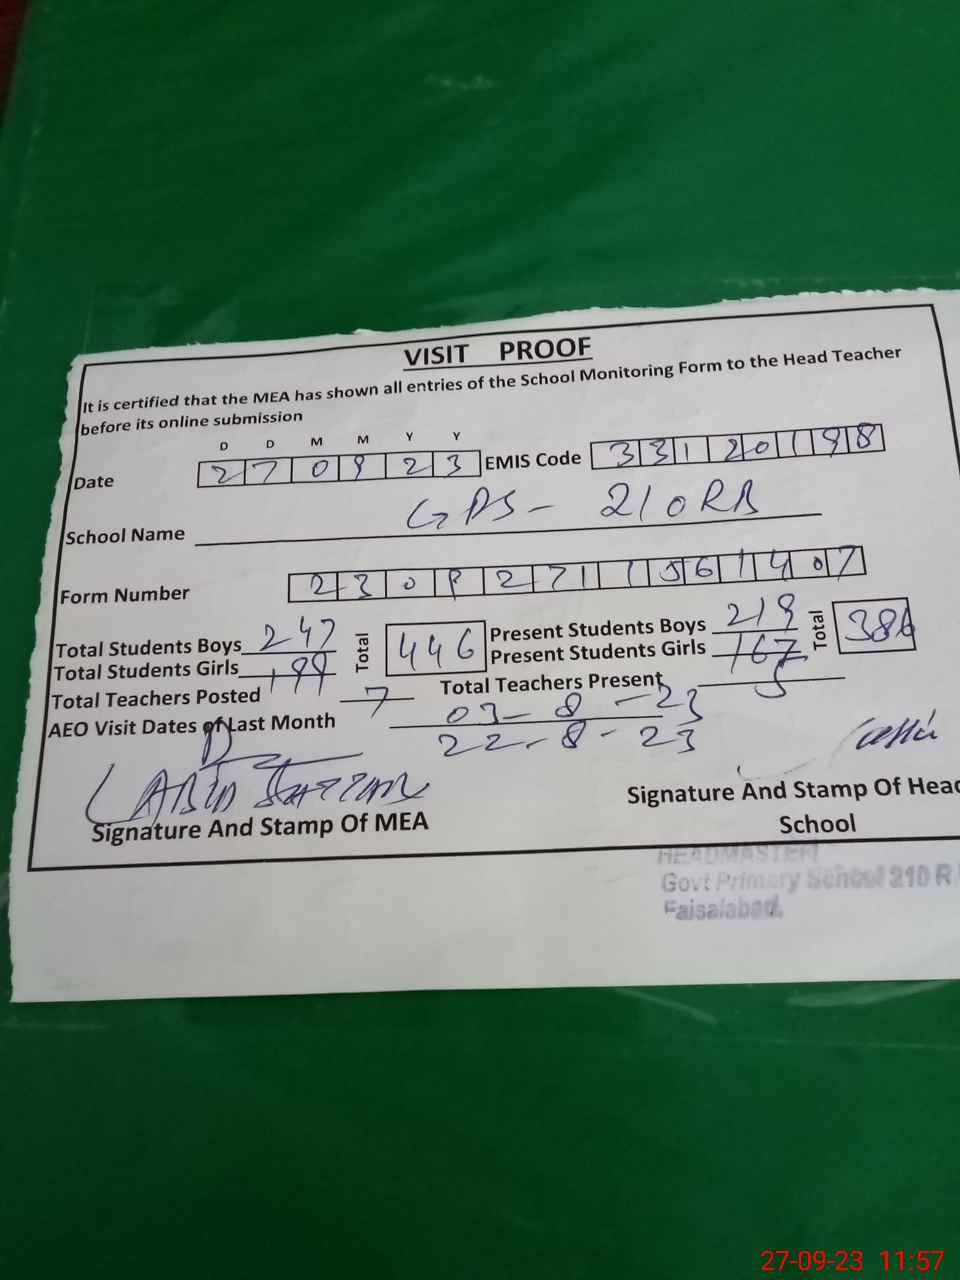 VISIT PROOF
It is certified that the MEA has shown all entries of the School Monitoring Form to the Head Teacher
before its online submission
D D M M Y Y
Date 2 7 0 9 2 3 EMIS Code 3 3 1 2 0 1 9 8
School Name GPS - 210 RB
Form Number 2 3 0 9 2 7 1 1 5 6 1 4 0 7
Total Students Boys 247 Total 446 Present Students Boys 219 Total 386
Total Students Girls 199 Present Students Girls 167
Total Teachers Posted 7 Total Teachers Present 5
AEO Visit Dates of Last Month 03-8-23
22-8-23
Signature And Stamp Of MEA
Signature And Stamp Of Head
School
HEADMASTER
Govt Primary School 210 R.
Faisalabad.
27-09-23 11:57